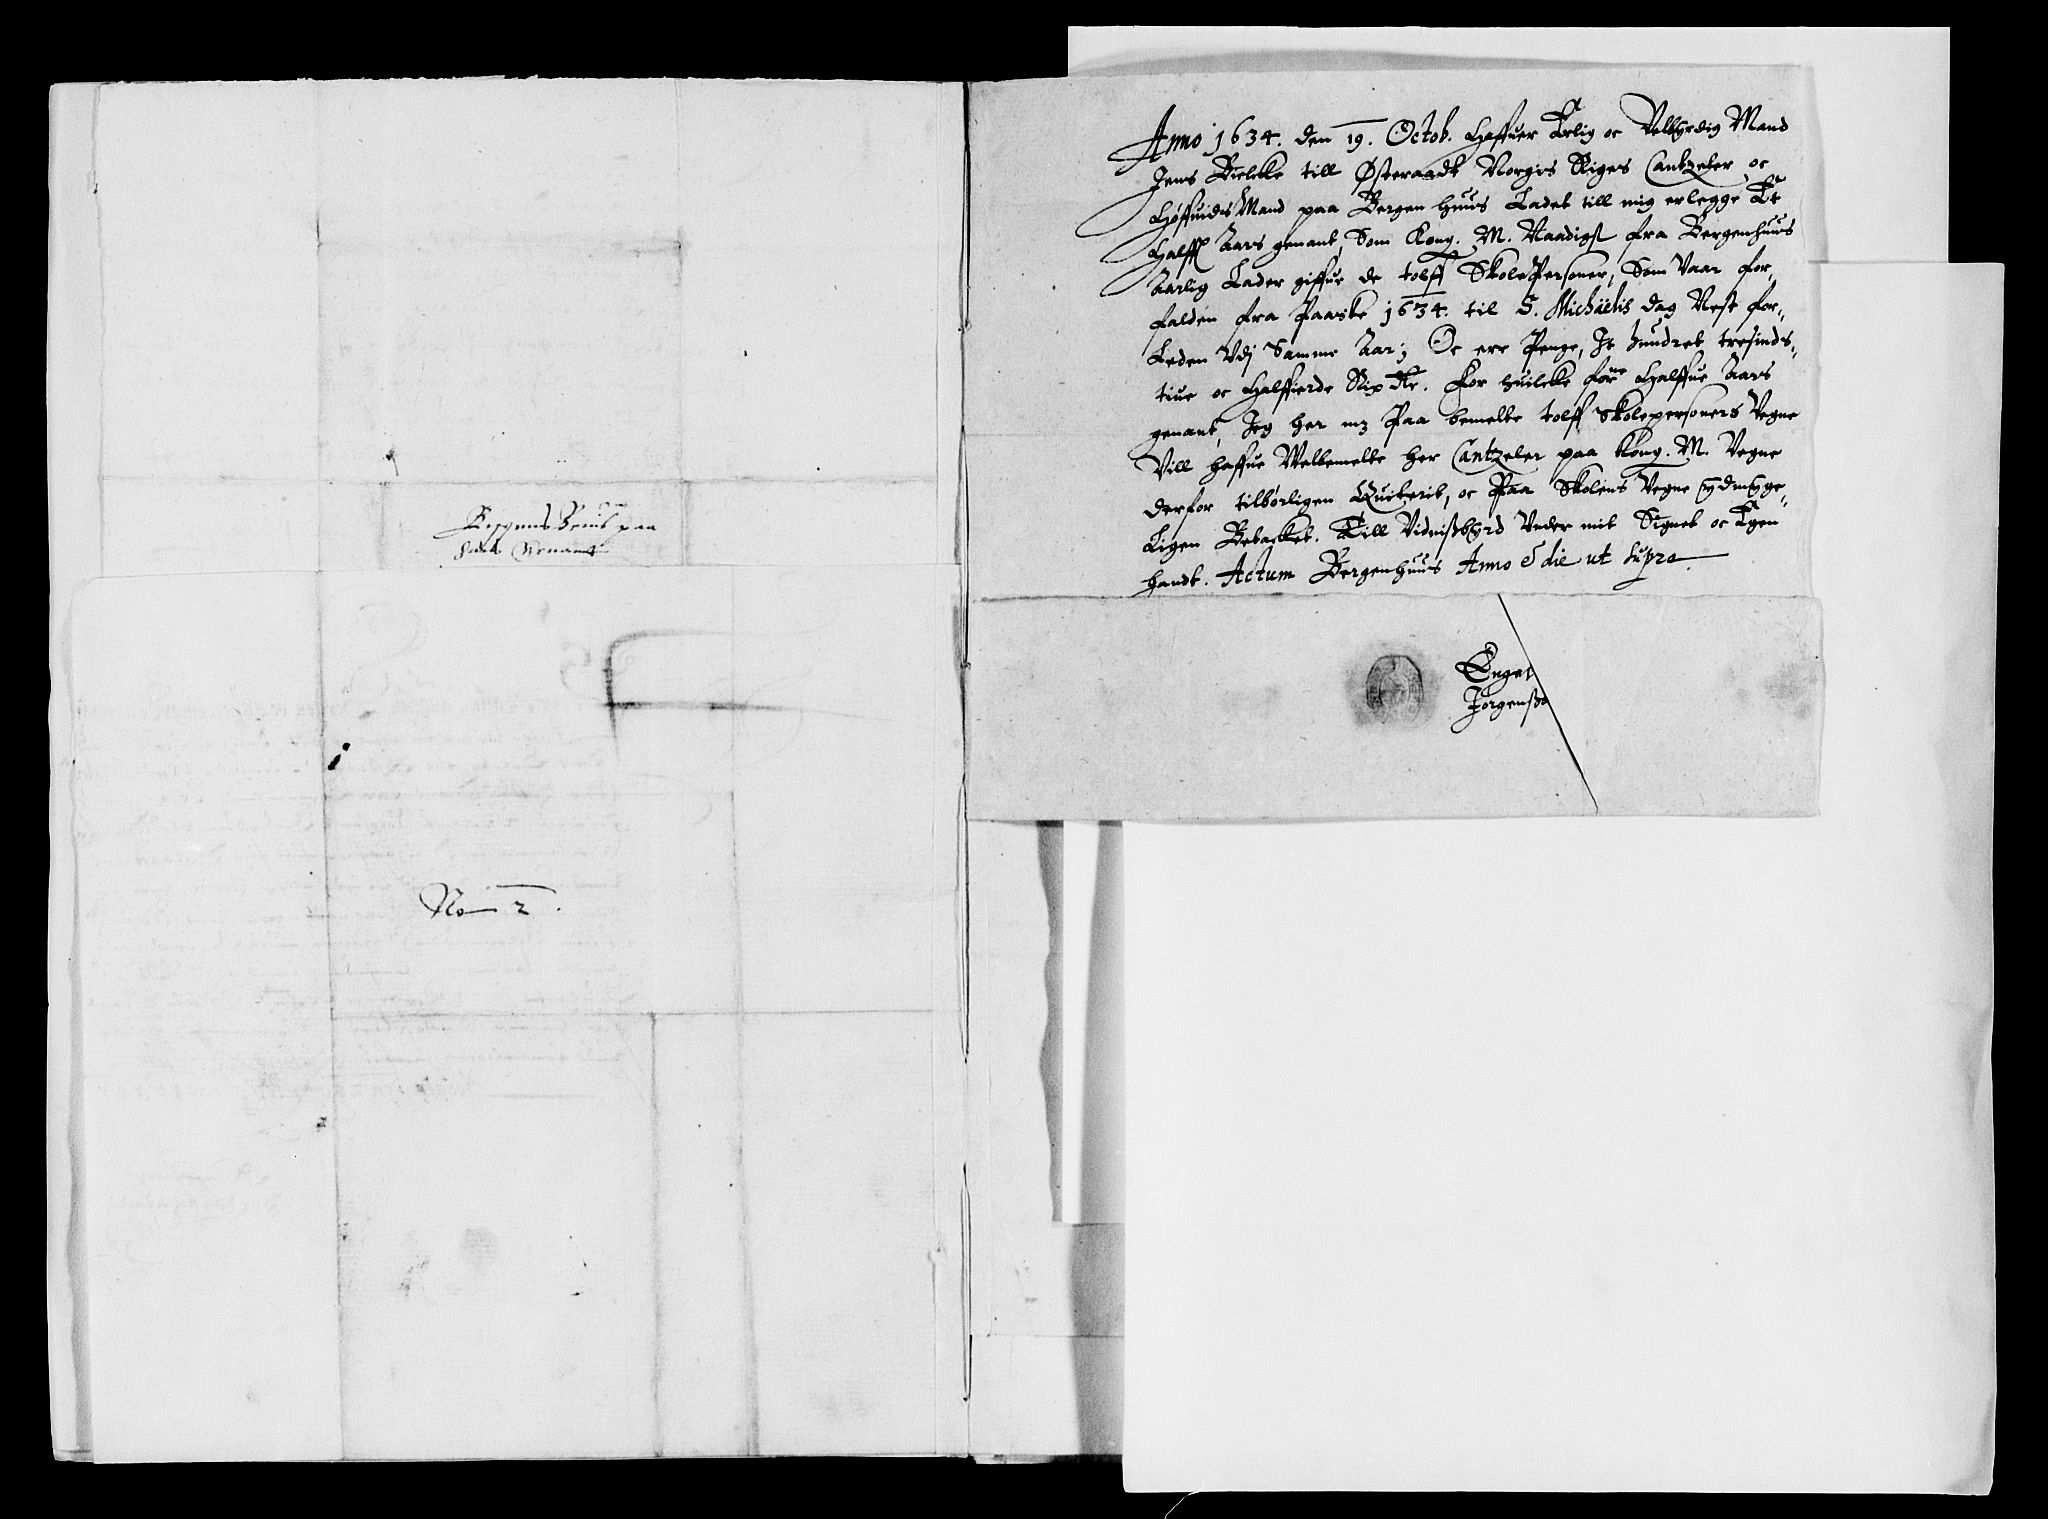 paa
No 2.
Anno 1634. den 19. Octob. Haffuer Erlig oc Velbyrdig Mand
Jens Bielcke till Østeraadt Norgis Rigers Cantzeler oc
Høffuids Mand paa Bergen huus Ladet till mig erlegge Et
Halff Aars genant, Som Kong. M. Naadigst fra Bergenhuus
Aarlig Lader giffue de tolff SkolePersoner, Som Vaar for,
falden fra Paaske 1634. til S. Michaëlis dag Nest for„
Leden Udj Samme Aar; Oc ere Penge, It hundret tresinds„
tiue oc Halffierde Rix dlr. For huilcke forne Halffue Aars
genant, Jeg her mz Paa bemelte tolff Skolepersoners Vegne
Vill haffue Welbemelte Her Cantzeler paa Kong. M. Vegne
derfor tilbørligen Quiterit, oc Paa Skolens Vegne ydmyge„
Ligen Betacket. Till Vidnißbyrd Under mit Signet oc Egen
handt. Actum Bergenhuus Anno & die ut supra.
Engel
Jørgenßø